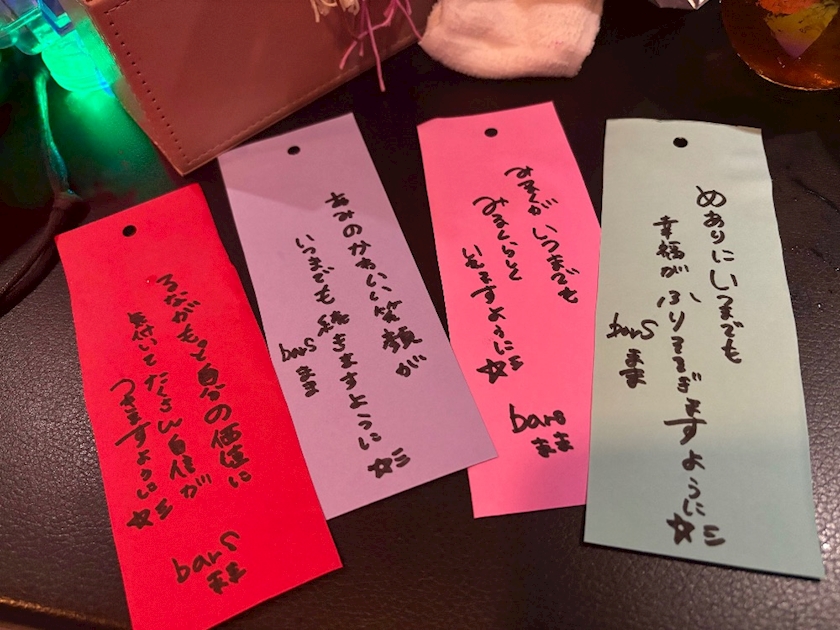 るながもっと自分の価値に
気付いてたくさん自信が
つきますように☆ミ
barS
まま
あみのかわいい笑顔が
いつまでも続きますように
☆ミ
barS
まま
みるくがいつまでも
みるくらしく
いれますように
☆ミ
bars
まま
めありにいつまでも
幸福がふりそそぎますように
☆ミ
barS
まま